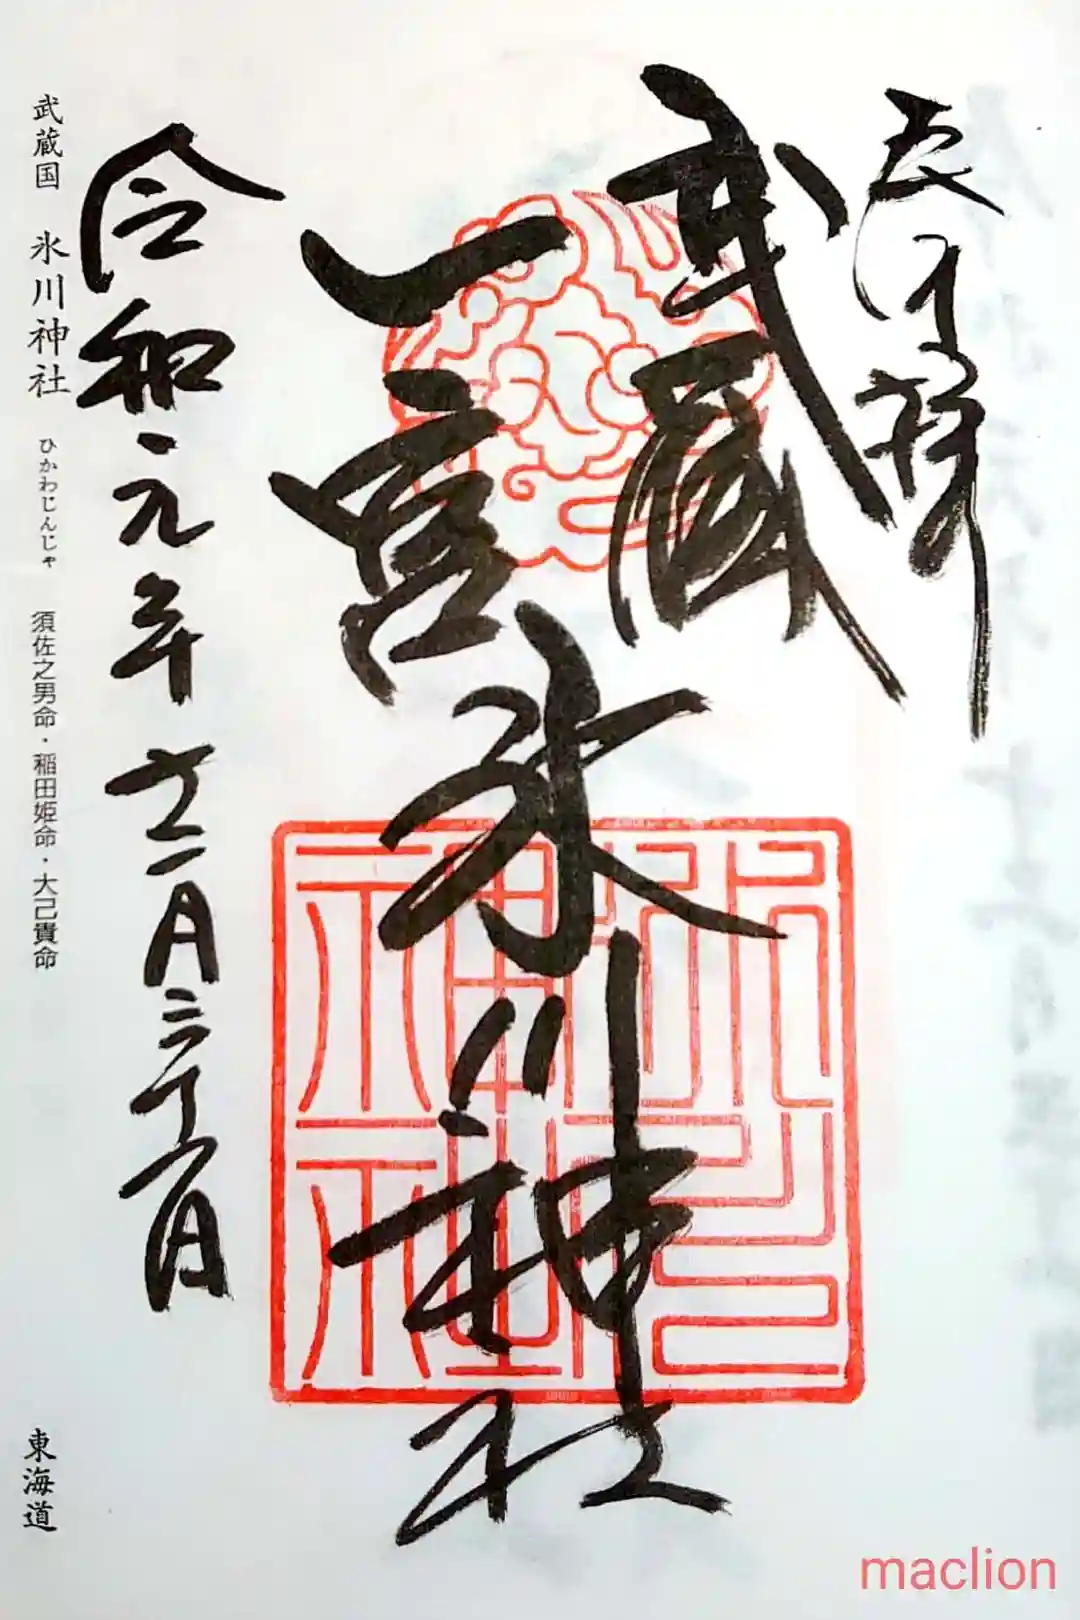 奉拝
武蔵
一宮
氷川神社
令和元年十一月二十一日
武蔵国 氷川神社 ひかわじんじゃ 須佐之男命・稲田姫命・大己貴命 東海道
maclion